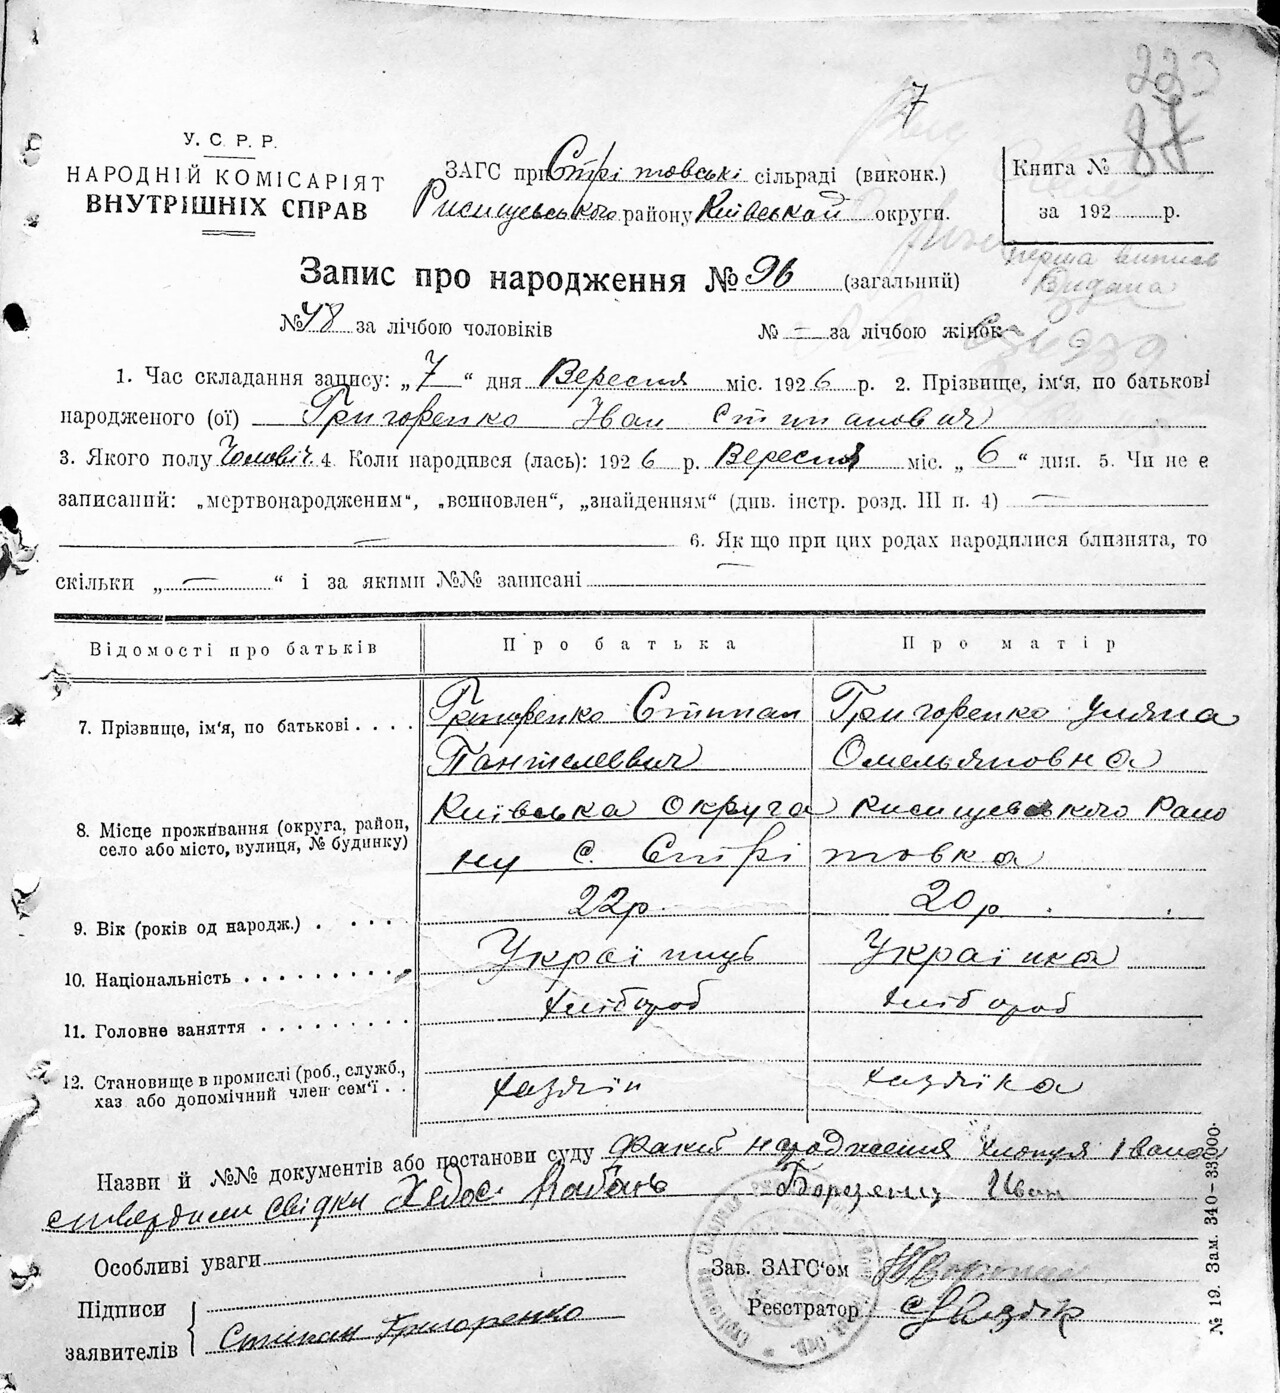 7
223
87
У. С. Р. Р.
НАРОДНІЙ КОМІСАРІЯТ
ВНУТРІШНІХ СПРАВ
ЗАГС при Стрітовські сільраді (виконк.)
Рисищевського району Київської округи.
Книга №
за 192 р.
перша випись
Видана
Запис про народження № 96 (загальний)
№ 48 за лічбою чоловіків № – за лічбою жінок
1. Час складання запису: „7“ дня Вересня міс. 1926 р. 2. Прізвище, ім'я, по батькові
народженого (ої) Григоренко Іван Стипанович
3. Якого полу Чоловіч. 4. Коли народився (лась): 1926 р. Вересня міс. „6“ дня. 5. Чи не є
записаний: „мертвонародженим“, „всиновлен“, „знайденням“ (див. інстр. розд. III п. 4) —
— 6. Як що при цих родах народилися близнята, то
скільки „—“ і за якими №№ записані —
Відомості про батьків Про батька Про матір
7. Прізвище, ім'я, по батькові Григоренко Стипан Григоренко Уляна
Пантелеевич Омельяновна
8. Місце проживання (округа, район, село або місто, вулиця, № будинку) Київська Округа Рисищевського Райо
ну с. Стрітовка
9. Вік (років од народж.) 22р. 20р.
10. Національність Українць Українка
11. Головне заняття Хлібороб Хлібороб
12. Становище в промислі (роб., служб., хаз або допомічний член сем'ї Хазяїн Хазяїка
Назви й №№ документів або постанови суду Факт народження хлопця Івана
ствердили свідки Хедос Кабань Борзенец Иван
Особливі уваги
Зав. ЗАГС'ом
Підписи
заявителів
Степан Григоренко
Реєстратор
№ 19. Зам. 340–33000.